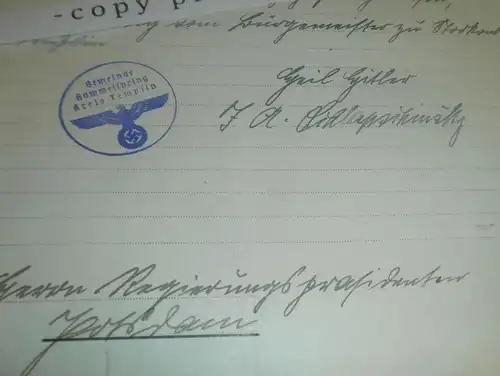 -copy p
vom Bürgermeister zu Storkow
Gemeinde
Hammelspring
Kreis Templin
Heil Hitler
I A.
Herrn Regierungspräsidenten
Potsdam